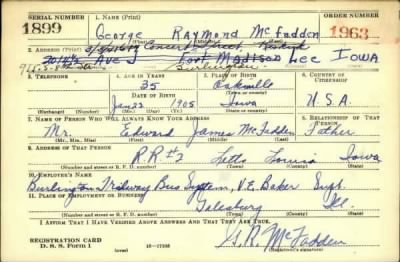 SERIAL NUMBER 1. NAME (Print) ORDER NUMBER
1899 George Raymond McFadden 1963
(First) (Middle) (Last)
2. ADDRESS (Print)
Concert Street, Keokuk
2014½ Ave J Fort Madison Lee Iowa
Burlington
(Number and street or R. F. D. number) (Town) (County) (State)
3. TELEPHONE 4. AGE IN YEARS 5. PLACE OF BIRTH 6. COUNTRY OF CITIZENSHIP
35 Oakville
DATE OF BIRTH (Town or county)
Jan 22 1905 Iowa U.S.A.
(Exchange) (Number) (Mo.) (Day) (Yr.) (State or country)
7. NAME OF PERSON WHO WILL ALWAYS KNOW YOUR ADDRESS 8. RELATIONSHIP OF THAT PERSON
Mr. Edward James McFadden Father
(Mr., Mrs., Miss) (First) (Middle) (Last)
9. ADDRESS OF THAT PERSON
R.R. #2 Letts Louisa Iowa
(Number and street or R. F. D. number) (Town) (County) (State)
10. EMPLOYER'S NAME
Burlington Trailway Bus System, V.E. Baker Supt.
11. PLACE OF EMPLOYMENT OR BUSINESS
Galesburg Ill.
(Number and street or R. F. D. number) (Town) (County) (State)
I AFFIRM THAT I HAVE VERIFIED ABOVE ANSWERS AND THAT THEY ARE TRUE.
REGISTRATION CARD
D. S. S. Form 1 (over) 16—17105 G. R. McFadden
(Registrant's signature)